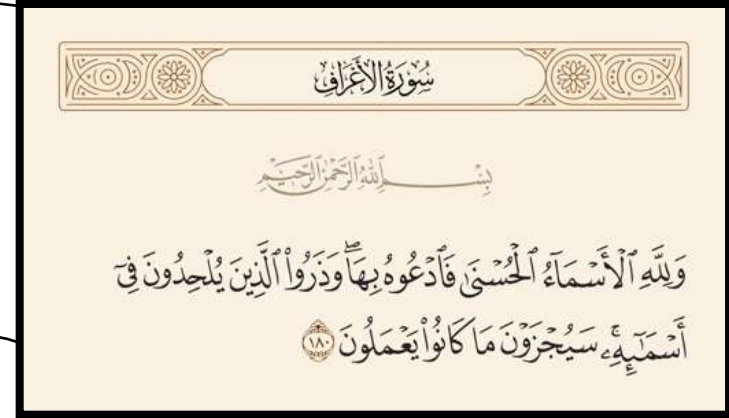 سُورَةُ الأَعْرَافِ
بِسْمِ ٱللَّهِ ٱلرَّحْمَٰنِ ٱلرَّحِيمِ
وَلِلَّهِ ٱلْأَسْمَآءُ ٱلْحُسْنَىٰ فَٱدْعُوهُ بِهَا ۖ وَذَرُوا۟ ٱلَّذِينَ يُلْحِدُونَ فِىٓ
أَسْمَـٰٓئِهِۦ ۚ سَيُجْزَوْنَ مَا كَانُوا۟ يَعْمَلُونَ ١٨٠